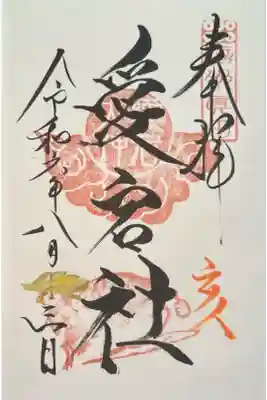 奉拝
愛宕社
亥
令和六年八月十三日